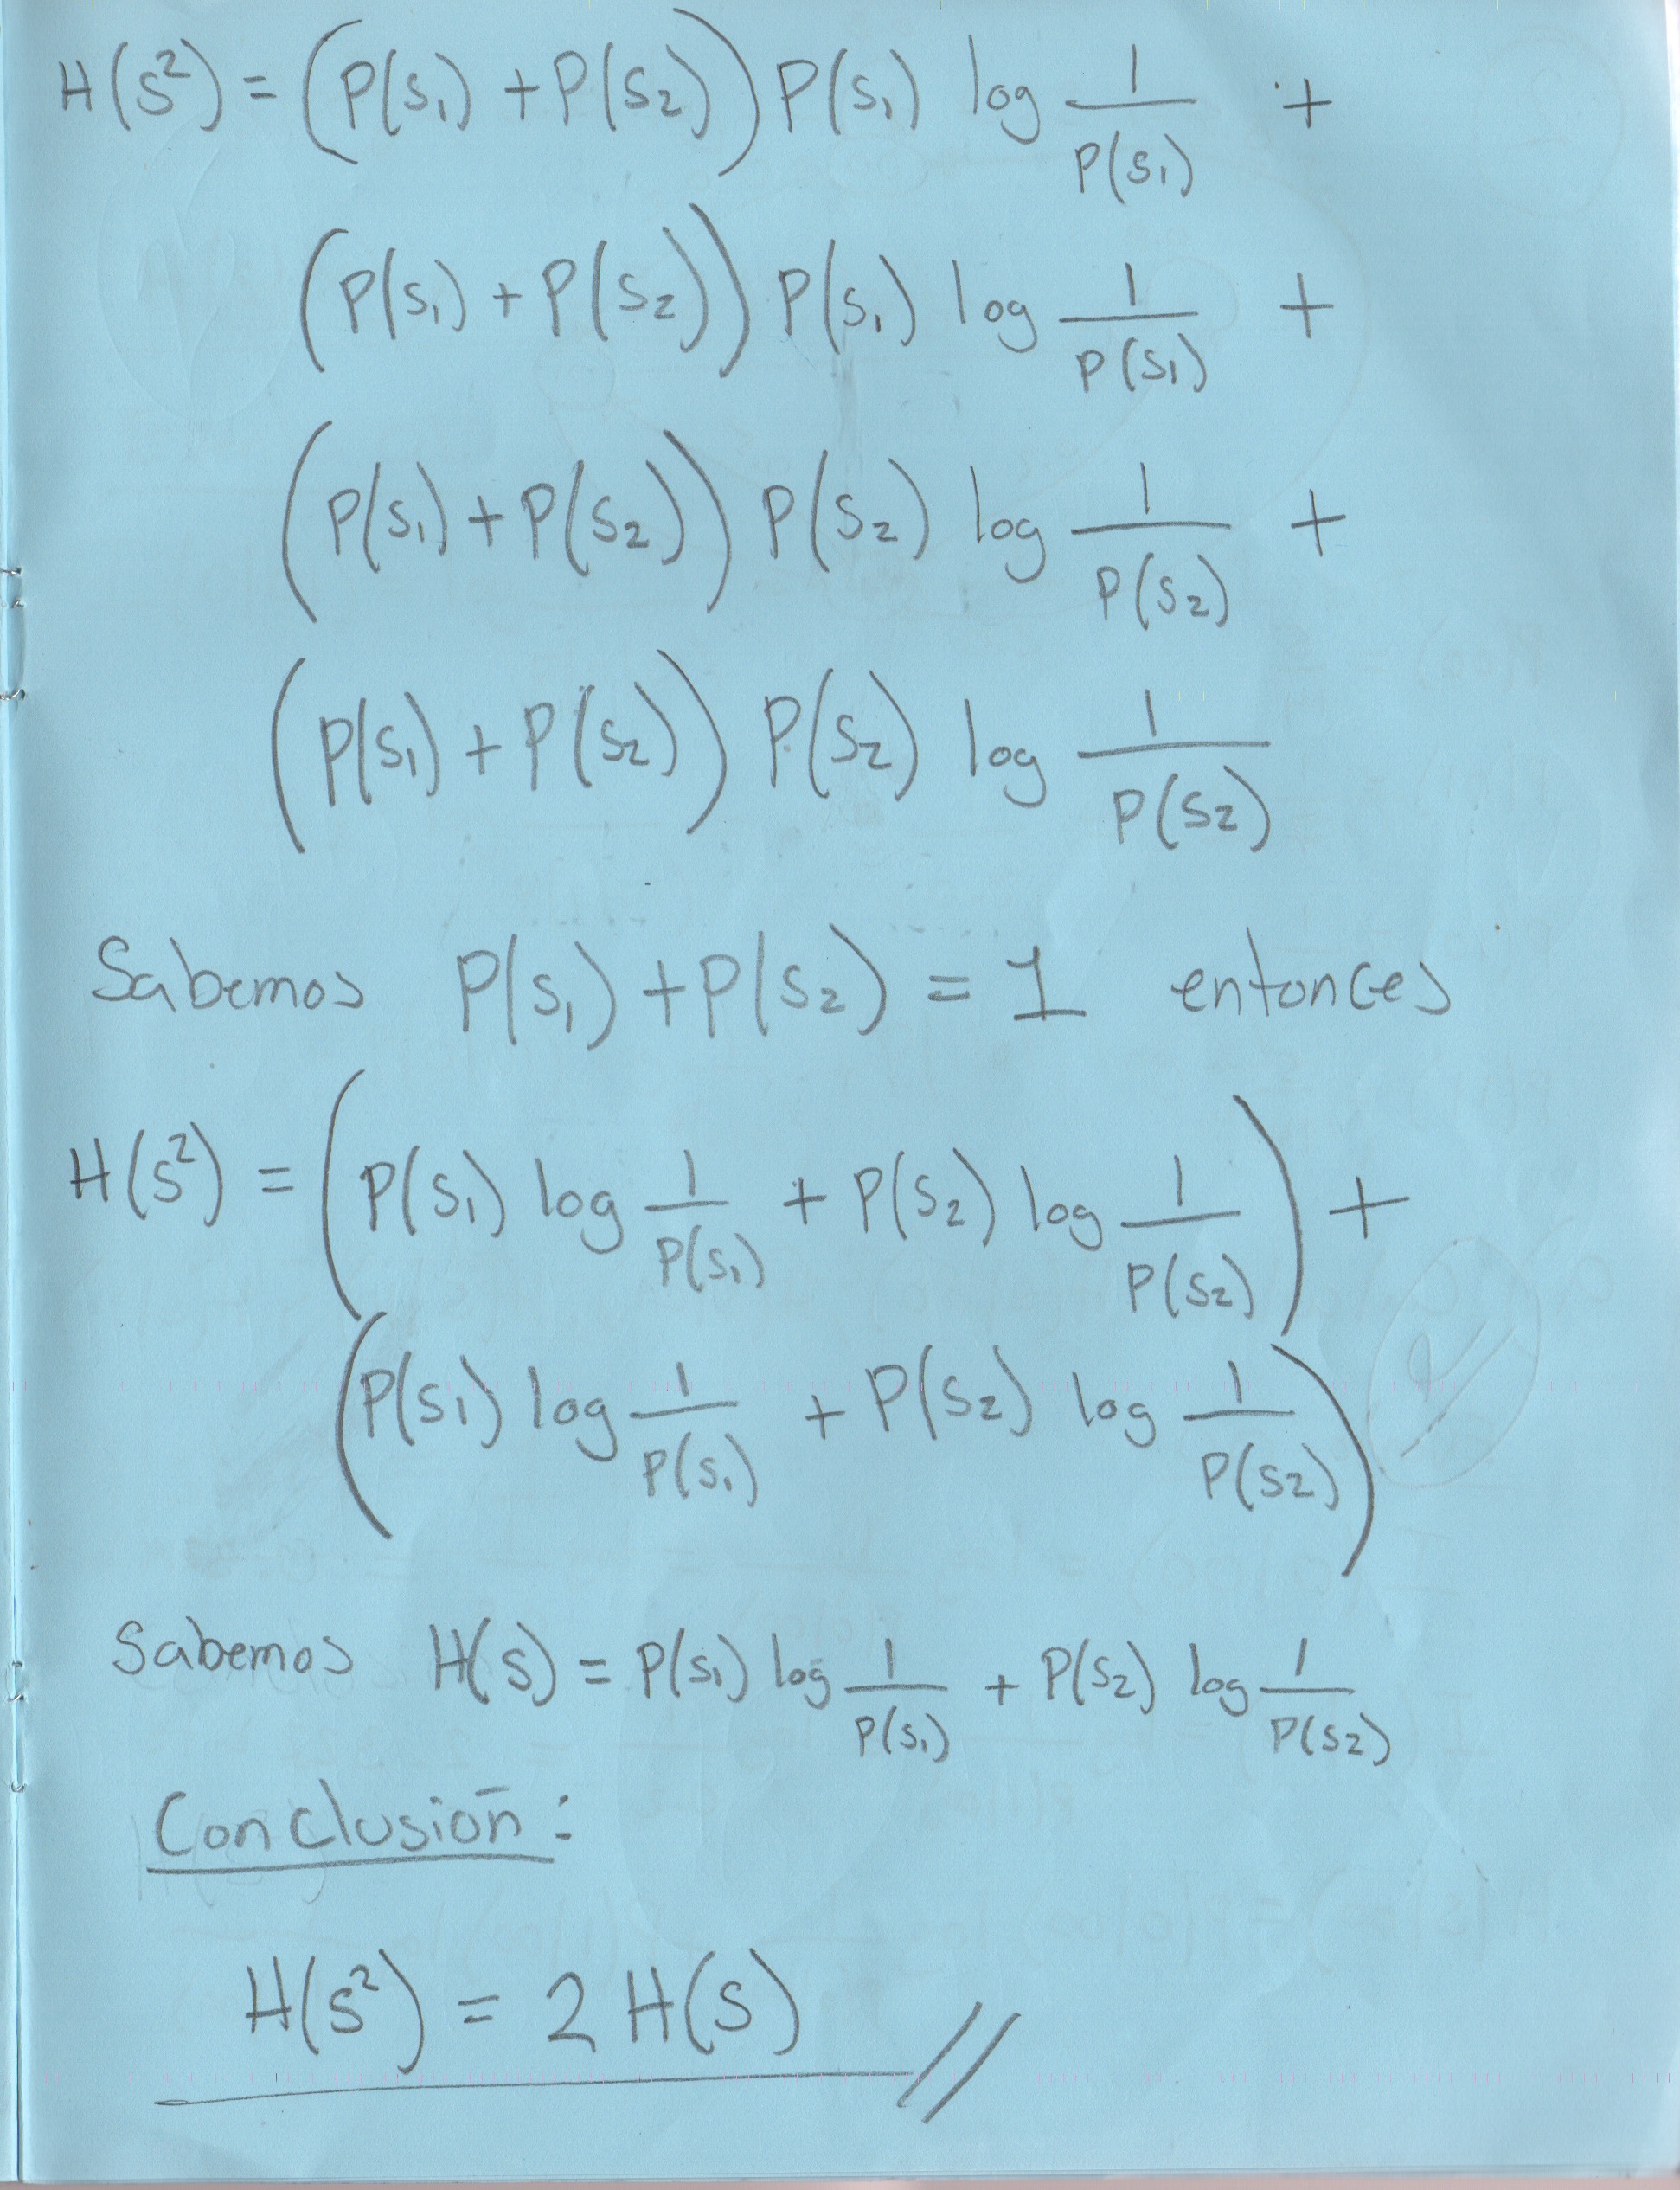 H(S²) = (P(S₁) + P(S₂)) P(S₁) log 1/P(S₁) +
(P(S₁) + P(S₂)) P(S₁) log 1/P(S₁) +
(P(S₁) + P(S₂)) P(S₂) log 1/P(S₂) +
(P(S₁) + P(S₂)) P(S₂) log 1/P(S₂)
Sabemos P(S₁) + P(S₂) = 1 entonces
H(S²) = (P(S₁) log 1/P(S₁) + P(S₂) log 1/P(S₂)) +
(P(S₁) log 1/P(S₁) + P(S₂) log 1/P(S₂))
Sabemos H(S) = P(S₁) log 1/P(S₁) + P(S₂) log 1/P(S₂)
Conclusión:
H(S²) = 2 H(S) //